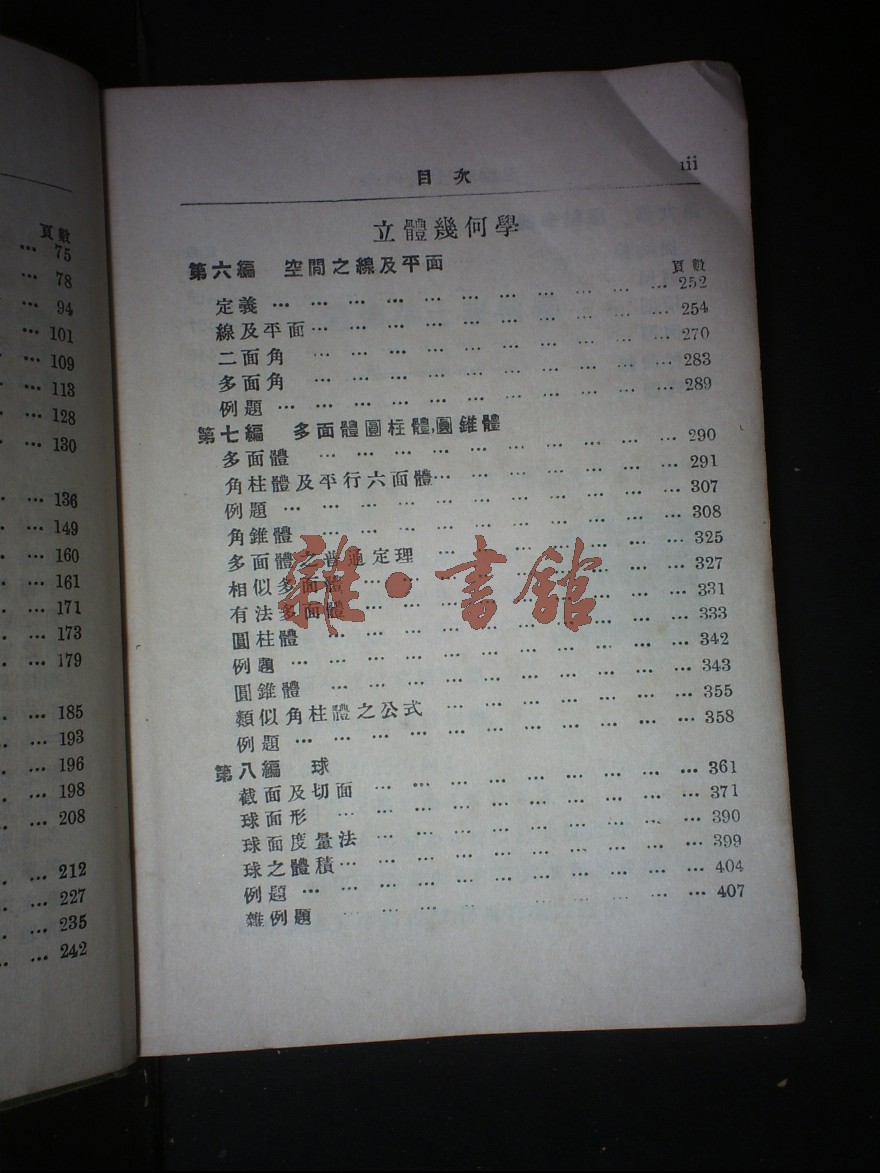 頁數
… 75
… 78
… 94
… 101
… 109
… 113
… 128
… 130
… 136
… 149
… 160
… 161
… 171
… 173
… 179
… 185
… 193
… 196
… 198
… 208
… 212
… 227
… 235
… 242
目次 iii
立體幾何學
第六編 空間之線及平面 頁數
定義 … … … … … … … … … … … 252
線及平面 … … … … … … … … … … 254
二面角 … … … … … … … … … … 270
多面角 … … … … … … … … … … 283
例題 … … … … … … … … … … … 289
第七編 多面體,圓柱體,圓錐體
多面體 … … … … … … … … … … 290
角柱體及平行六面體 … … … … … … 291
例題 … … … … … … … … … … … 307
角錐體 … … … … … … … … … … 308
多面體之普通定理 … … … … … … 325
相似多面體 … … … … … … … … 327
有法多面體 … … … … … … … … 331
圓柱體 … … … … … … … … … … 333
例題 … … … … … … … … … … … 342
圓錐體 … … … … … … … … … … 343
類似角柱體之公式 … … … … … … 355
例題 … … … … … … … … … … … 358
第八編 球
截面及切面 … … … … … … … … … 361
球面形 … … … … … … … … … … 371
球面度量法 … … … … … … … … 390
球之體積 … … … … … … … … … 399
例題 … … … … … … … … … … … 404
雜例題 … … … … … … … … … … 407
雜·書館